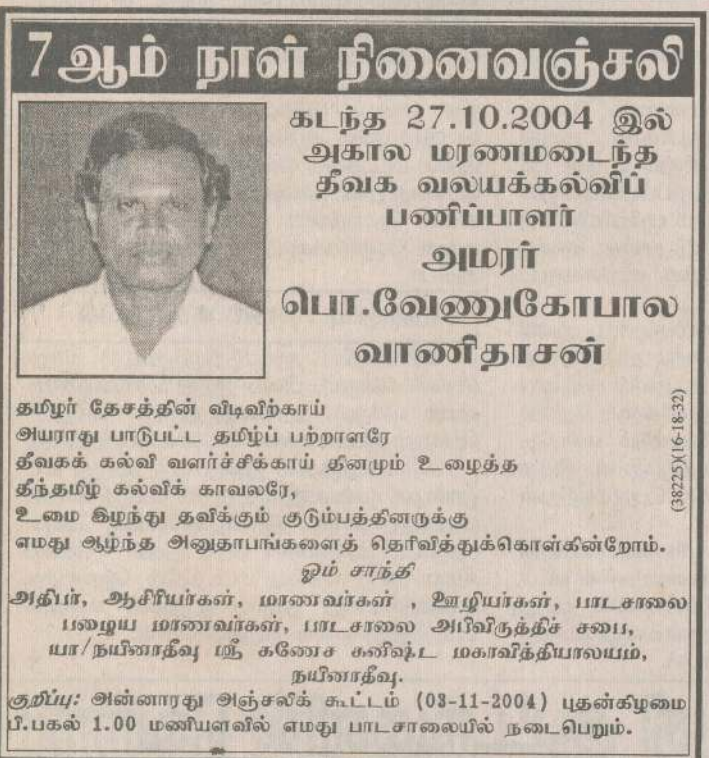 7ஆம் நாள் நினைவஞ்சலி
கடந்த 27.10.2004 இல்
அகால மரணமடைந்த
தீவக வலயக்கல்விப்
பணிப்பாளர்
அமரர்
பொ.வேணுகோபால
வாணிதாசன்
தமிழர் தேசத்தின் விடிவிற்காய்
அயராது பாடுபட்ட தமிழ்ப் பற்றாளரே
தீவகக் கல்வி வளர்ச்சிக்காய் தினமும் உழைத்த
தீந்தமிழ் கல்விக் காவலரே,
உமை இழந்து தவிக்கும் குடும்பத்தினருக்கு
எமது ஆழ்ந்த அனுதாபங்களைத் தெரிவித்துக்கொள்கின்றோம்.
ஓம் சாந்தி
அதிபர், ஆசிரியர்கள், மாணவர்கள் , ஊழியர்கள், பாடசாலை
பழைய மாணவர்கள், பாடசாலை அபிவிருத்திச் சபை,
யா/நயினாதீவு ஸ்ரீ கணேச கனிஷ்ட மகாவித்தியாலயம்,
நயினாதீவு.
குறிப்பு: அன்னாரது அஞ்சலிக் கூட்டம் (03-11-2004) புதன்கிழமை
பி.பகல் 1.00 மணியளவில் எமது பாடசாலையில் நடைபெறும்.
(38225)(16-18-32)